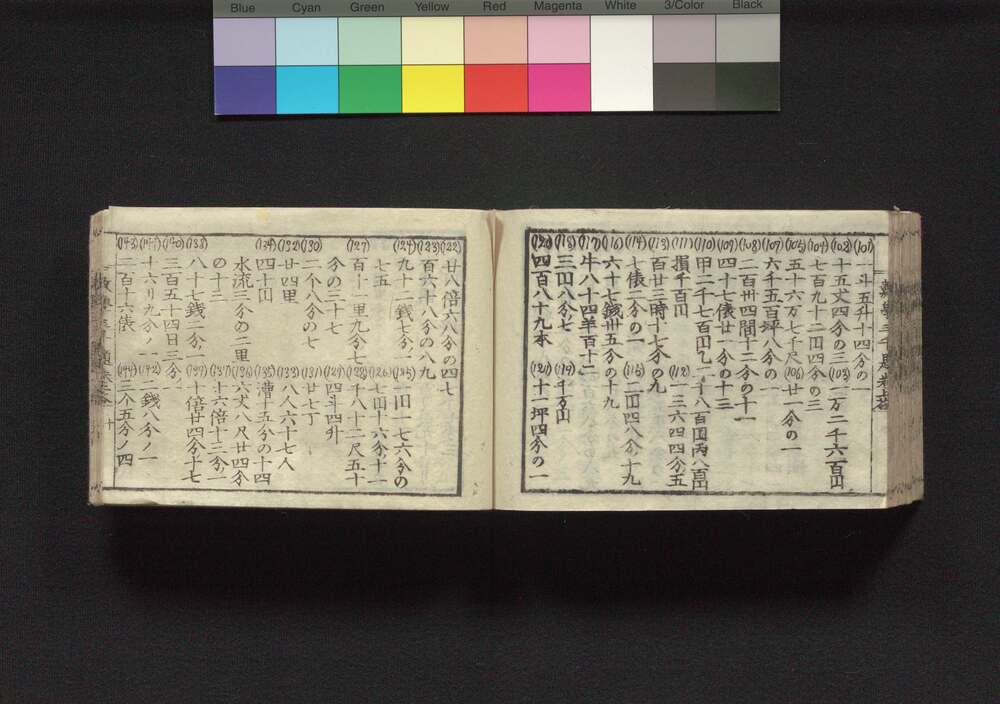 Blue Cyan Green Yellow Red Magenta White 3/Color Black
(101) 一斗五升十四分の一
(102) 十五丈四分の三 (103) 一万二千六百円
(104) 七百九十二円四分の三
(105) 五十六万七千尺 (106) 廿一分の一
(107) 六千五百坪八分の一
(108) 二百卅四間十二分の十一
(109) 四十七俵廿一分の十三
(110) 甲二千七百円乙二千八百円丙八百円
(111) 損千百円 (112) 一三六四四分五
(113) 百廿三時十七分の九
(114) 七俵二分の一 (115) 二円四八分十九
(116) 六十七銭卅五分の十九
(117) 牛八十四羊百十二
(118) 三円八分七 (119) 千万円
(120) 四百八十九本 (121) 十一坪四分の一
(122) 廿八倍六八分の四七
(123) 百六十八分の八九
(124) 九十二銭七分ノ一 (125) 一円一七六分の
七五 (126) 七円十六分十一
(127) 百十一里九分七 (128) 千八十二尺五十
分の三十七 (129) 四斗四升
(130) 二个八分の七 (131) 廿七丁
(132) 廿四里 (133) 八人六十七人
(134) 四十円 (135) 漕十五分の十四
水流三分の二里 (136) 六丈八尺廿四分
の十三 (137) 十六倍十三分ノ一
(138) 八十七銭二分ノ一 (139) 十倍廿四分十七
(140) 三百五十四日三分ノ一
(141) 十六リ九分ノ一 (142) 二銭八分ノ一
(143) 三百十六俵 (144) 三个五分ノ四